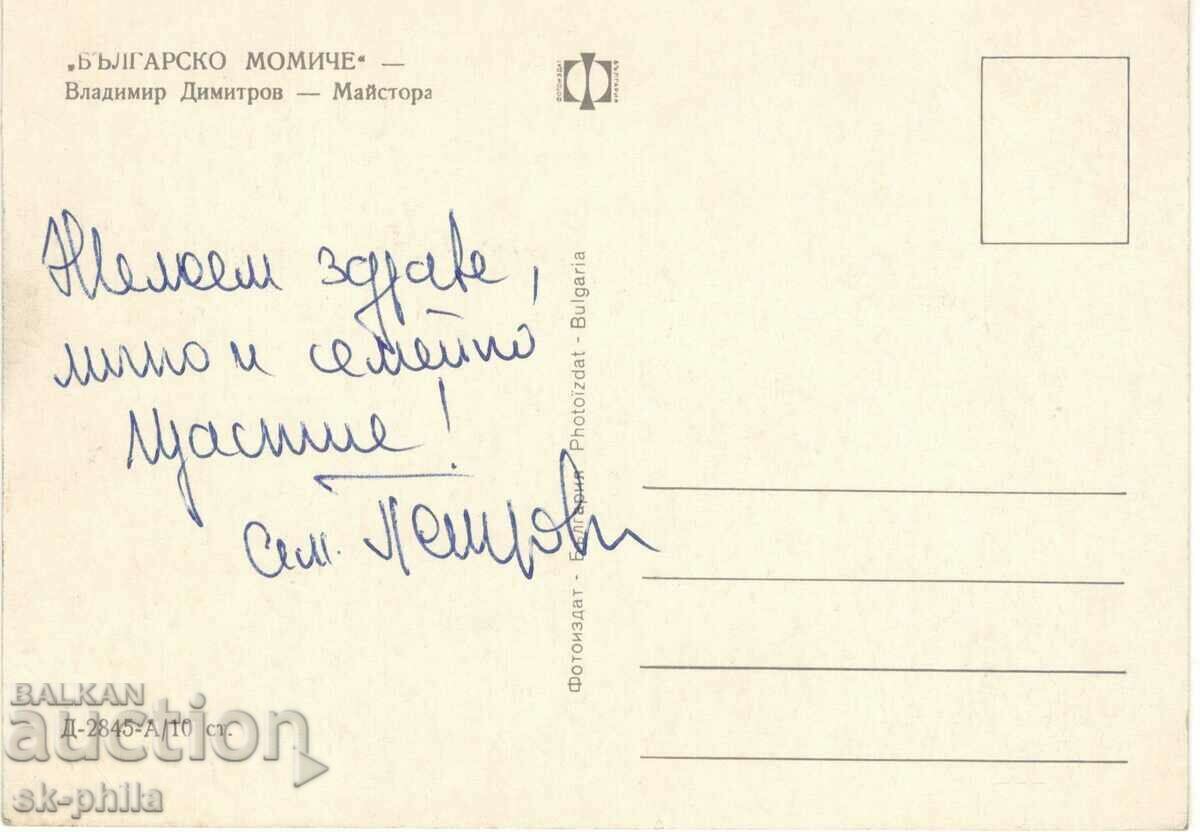 „БЪЛГАРСКО МОМИЧЕ“ —
Владимир Димитров — Майстора
ФОТОИЗДАТ
Желаем здраве,
лично и семейно
щастие!
Сем. Петрови
Фотоиздат - България Photoïzdat - Bulgaria
Д-2845-А/10 ст.
BALKAN
auction
sk-phila